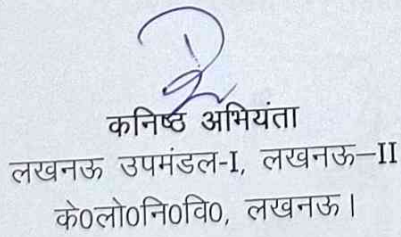 कनिष्ठ अभियंता
लखनऊ उपमंडल-I, लखनऊ–II
के०लो०नि०वि०, लखनऊ।